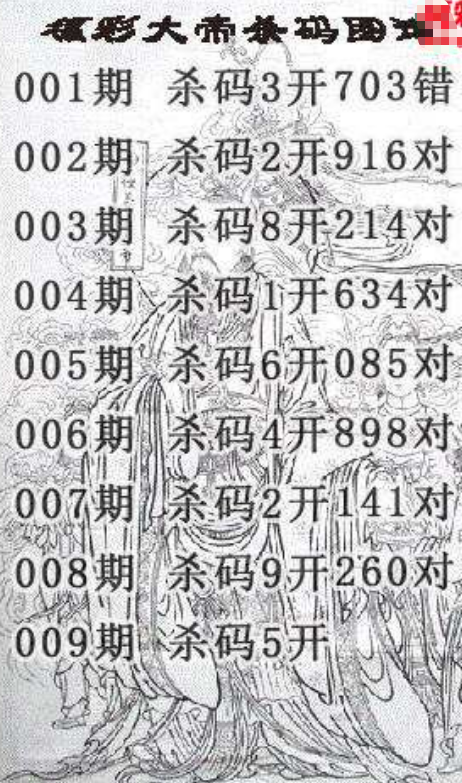 彩大帝杀码图
001期 杀码3开703错
002期 杀码2开916对
003期 杀码8开214对
004期 杀码1开634对
005期 杀码6开085对
006期 杀码4开898对
007期 杀码2开141对
008期 杀码9开260对
009期 杀码5开